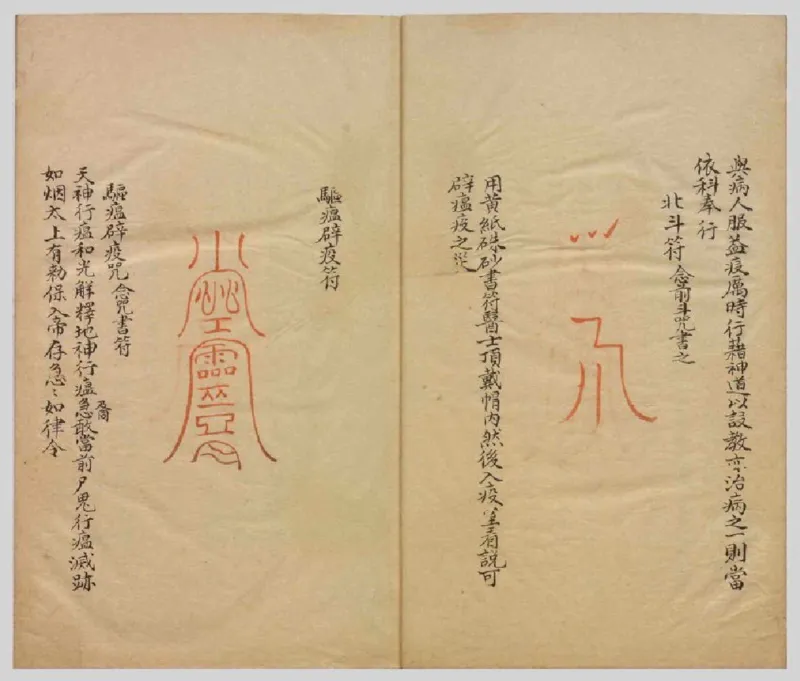 與病人服蓋疫厲時行藉神道以設教亦治病之一則當
依科奉行
北斗符 念前斗咒書之
用黃紙硃砂書符醫士頂戴帽內然後入疫 說可
辟瘟疫之災
驅瘟辟疫符
驅瘟辟疫咒 念咒書符
天神行瘟和光解釋地神行瘟急敢當前尸鬼行瘟滅跡
如烟太上有勅保入帝存急〻如律令